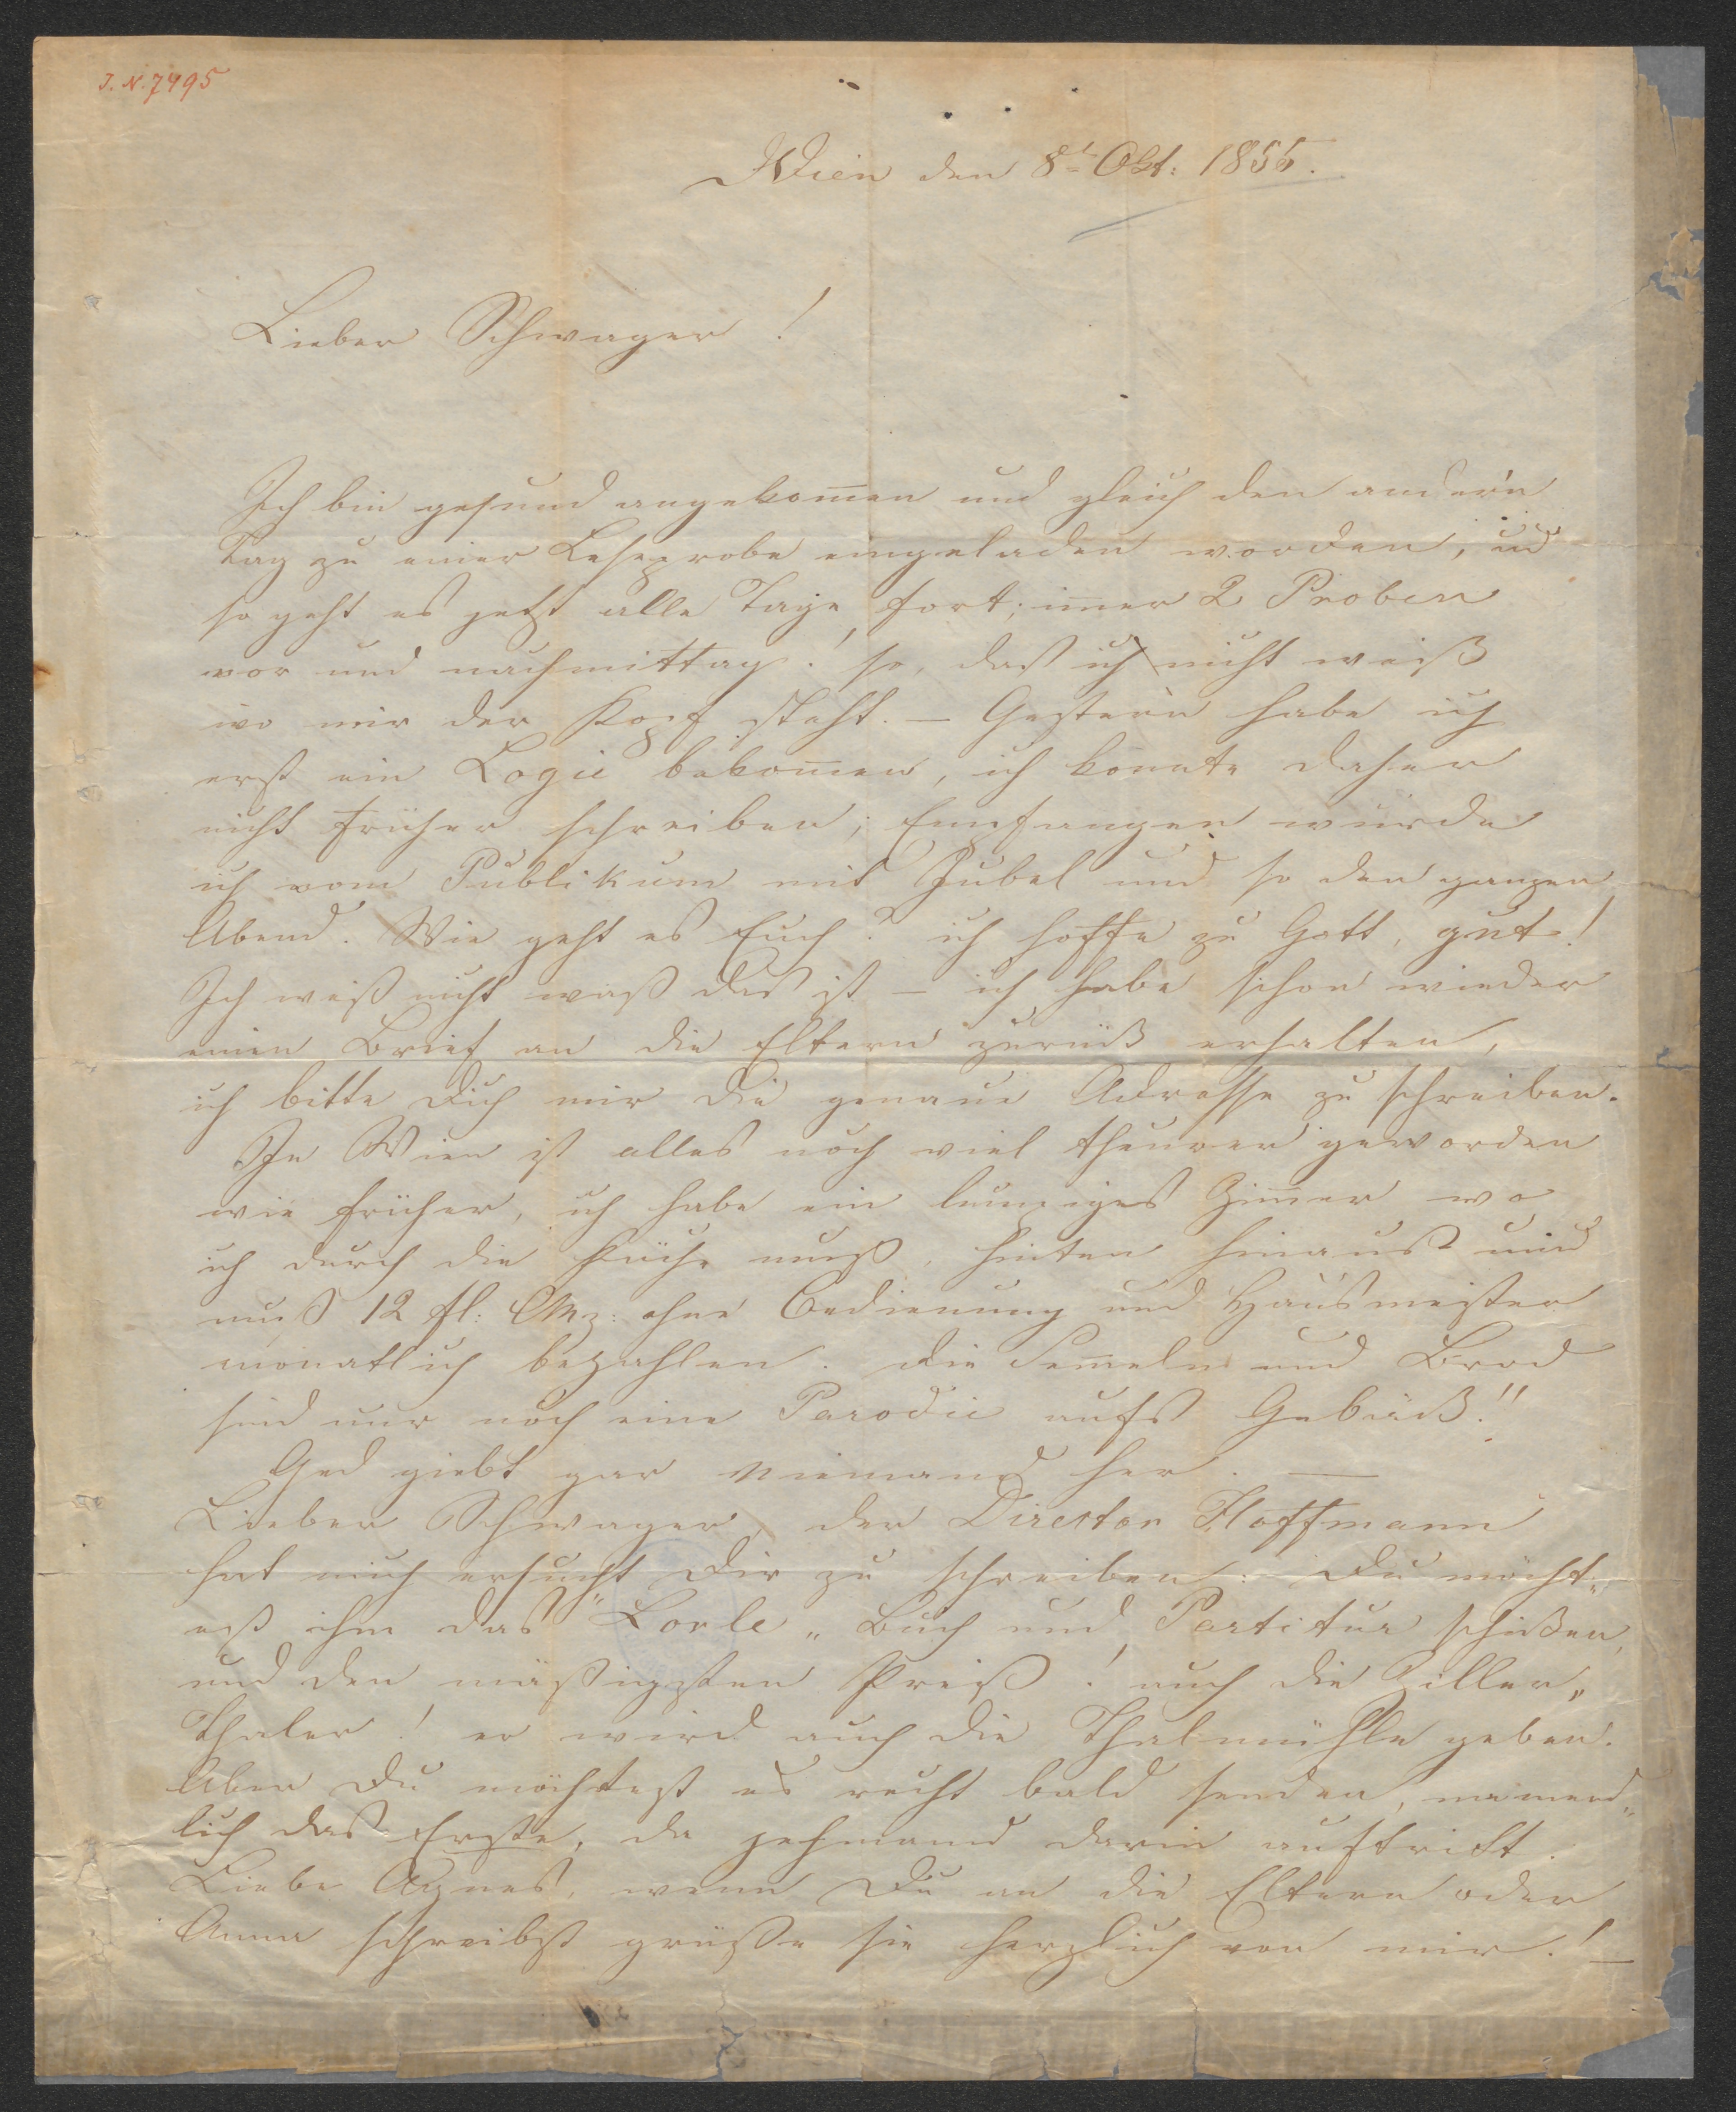 J. N. 7495
Wien den 8t Okt: 1855.
Lieber Schwager!
Ich bin gesund angekom̅en und gleich den andern
Tag zu einer Leseprobe eingeladen worden, ud
so geht es jetzt alle Tage fort; im̅er 2 Proben
vor und nachmittag! so, daß ich nicht weiß
wo mir der Kopf steht. — Gestern habe ich
erst ein Logie bekom̅en, ich konnte daher
nicht früher schreiben; Empfangen wurde
ich vom Publikum mit Jubel und so den ganzen
Abend. Wie geht es Euch? ich hoffe zu Gott, gut!
Ich weiß nicht waß das ist — ich habe schon wieder
einen Brief an die Eltern zurük erhalten,
ich bitte Dich mir die genaue Adresse zu schreiben.
In Wien ist alles noch viel theurer geworden
wie früher, ich habe ein lumpiges Zim̅er wo
ich durch die Küche muß, hinten hinauß und
muß 12 fl: CMz: ohne Bedienung und Hausmeister
monatlich bezahlen. die Sem̅eln und Brod
sind nur noch eine Parodie aufs Gebäk!!
Geld giebt gar niemand her. —
Lieber Schwager, der Director Hoffmann
hat mich ersucht Dir zu schreiben: Du möcht„
est ihm das "Lorle„ Buch und Partitur schiken,
und den mäßigsten Preiß! auch die Ziller„
Thaler! er wird auch die Thalmühle geben.
Aber Du möchtest es recht bald senden, namend„
lich das Erste, da jehmand darin auftritt.
Liebe Agnes, wenn Du an die Eltern oder
Anna schreibst grüße sie herzlich von mir! —